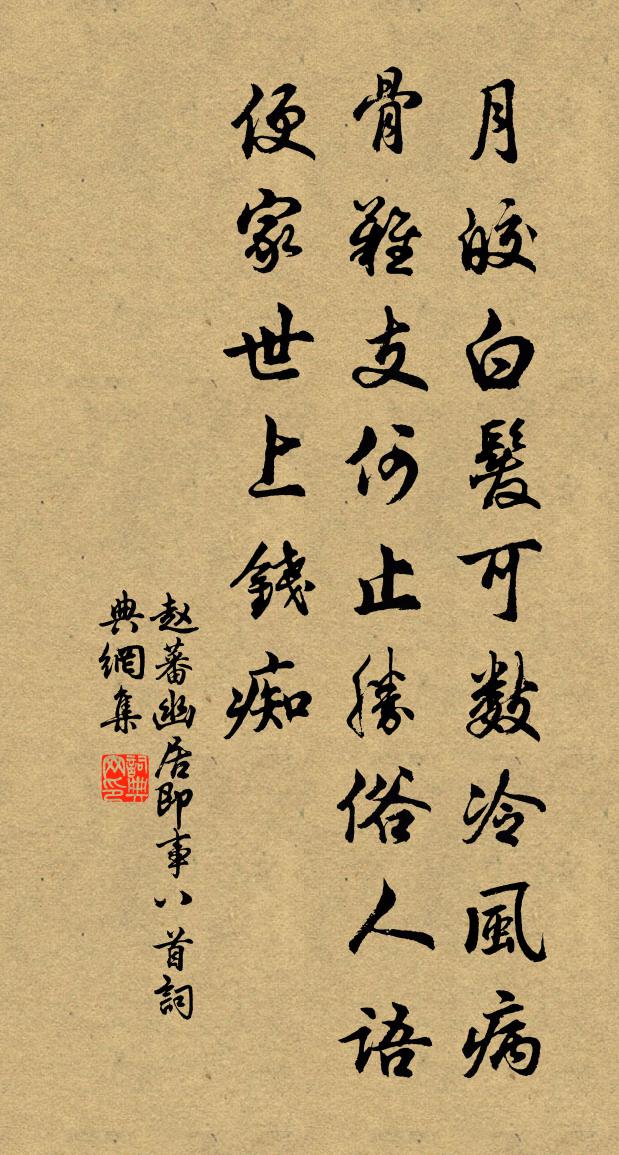 月皎白髮可數冷風病
骨難支何止勝俗人語
便家世上錢痴
赵蕃幽居即事八首詞
典網集
詞典網印